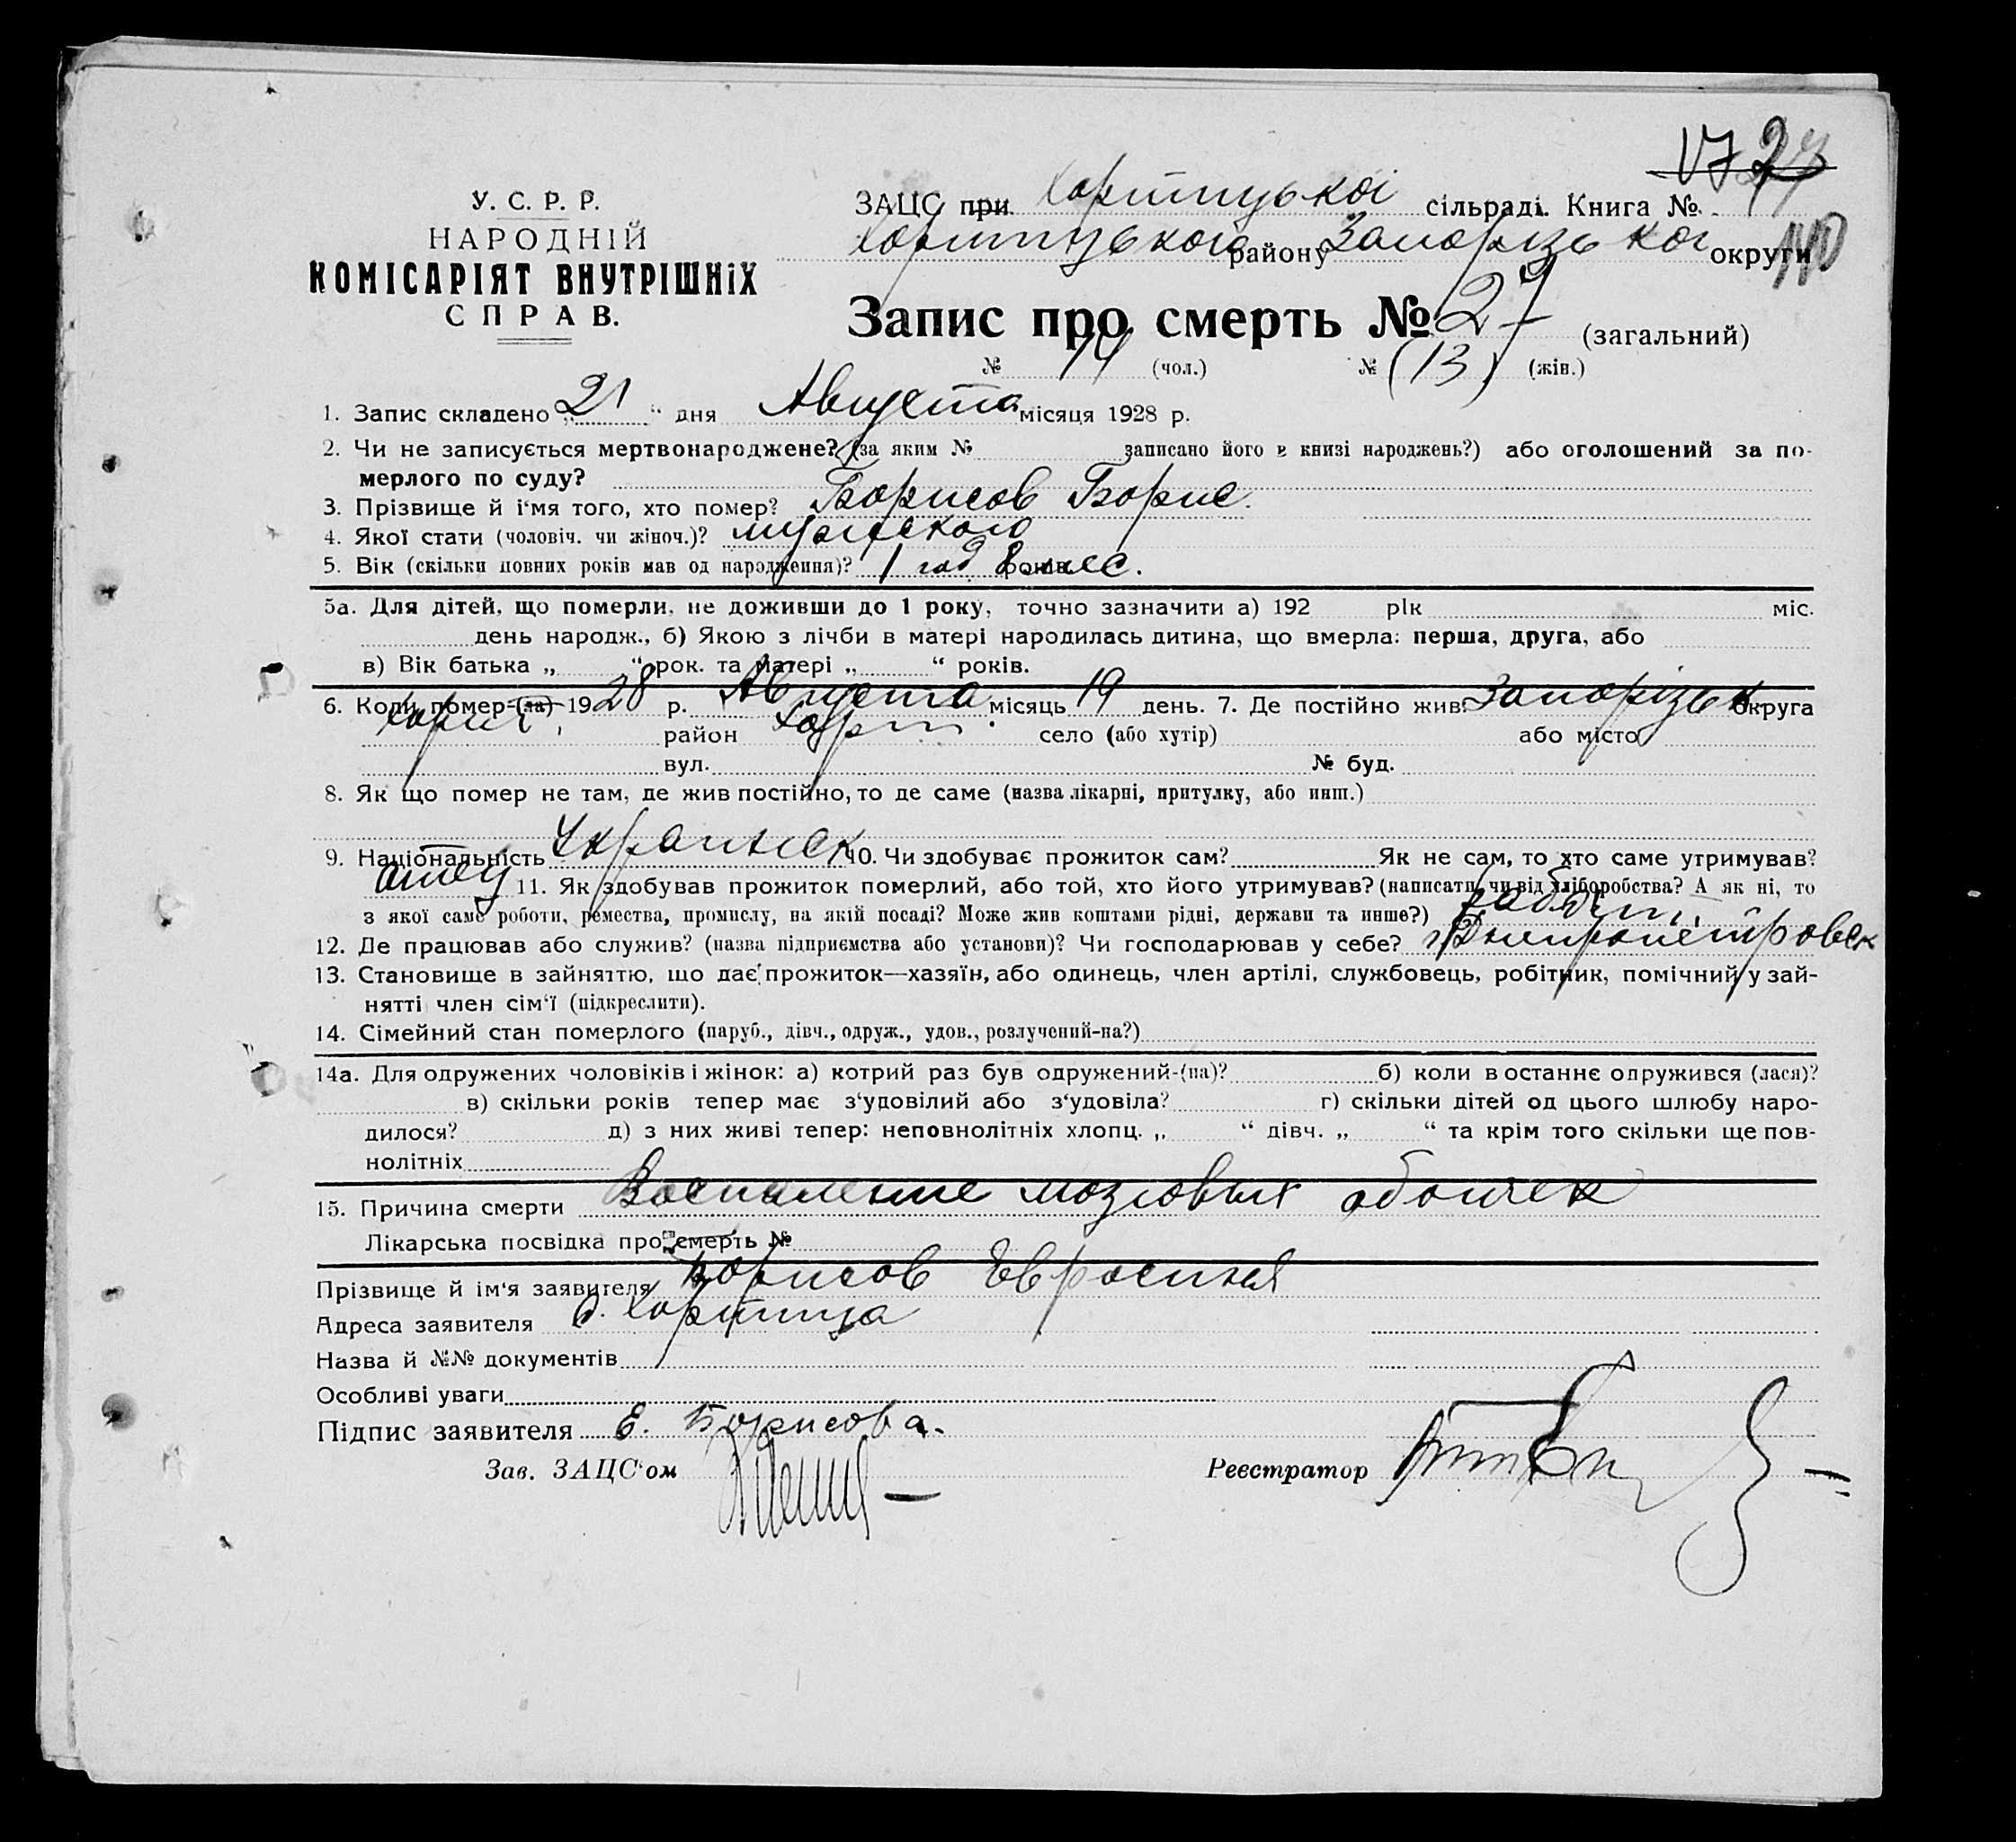 27
У. С. Р. Р.
НАРОДНІЙ
КОМІСАРІЯТ ВНУТРІШНіХ
СПРАВ.
ЗАЦС при Хортицької сільраді. Книга №
Хортицького району Запорізької округи
140
Запис про смерть № 27 (загальний)
№ 14 (чол.) № (13) (жін.)
1. Запис складено „21" дня Августа місяця 1928 р.
2. Чи не записується мертвонароджене? (за яким № записано його в книзі народжень?) або оголошений за по-
мерлого по суду?
3. Прізвище й і'мя того, хто помер? Борисов Борис.
4. Якої стати (чоловіч. чи жіноч.)? мужского
5. Вік (скільки повних років мав од народження)? 1 год 8 мес.
5а. Для дітей, що померли, не доживши до 1 року, точно зазначити а) 192 рік міс.
день народж., б) Якою з лічби в матері народилась дитина, що вмерла: перша, друга, або
в) Вік батька „ " рок. та матері „ " років.
6. Коли помер-(ла) 1928 р. Августа місяць 19 день. 7. Де постійно жив: Запорізьк округа
Хорт. район Хорт. село (або хутір) або місто
вул. № буд.
8. Як що помер не там, де жив постійно, то де саме (назва лікарні, притулку, або инш.)
9. Національність Украинск 10. Чи здобуває прожиток сам? Як не сам, то хто саме утримував?
отец 11. Як здобував прожиток померлий, або той, хто його утримував? (написати, чи від хліборобства? А як ні, то
з якої саме роботи, ремества, промислу, на якій посаді? Може жив коштами рідні, держави та инше?)
12. Де працював або служив? (назва підприємства або установи)? Чи господарював у себе? Днипропетровск
13. Становище в зайняттю, що дає прожиток—хазяїн, або одинець, член артілі, службовець, робітник, помічний у зай-
нятті член сім'ї (підкреслити).
14. Сімейний стан померлого (паруб., дівч., одруж., удов., розлучений-на?)
14а. Для одружених чоловіків і жінок: а) котрий раз був одружений-(на)? б) коли в останнє одружився (лася)?
в) скільки років тепер має з'удовілий або з'удовіла? г) скільки дітей од цього шлюбу наро-
дилося? д) з них живі тепер: неповнолітніх хлопц. „ " дівч. „ " та крім того скільки ще пов-
нолітніх
15. Причина смерти Воспаление мозговых оболчек
Лікарська посвідка про смерть №
Прізвище й ім'я заявителя Борисов Евросиня
Адреса заявителя с. Хортица
Назва й №№ документів
Особливі уваги
Підпис заявителя Е. Борисова.
Зав. ЗАЦС'ом Реєстратор